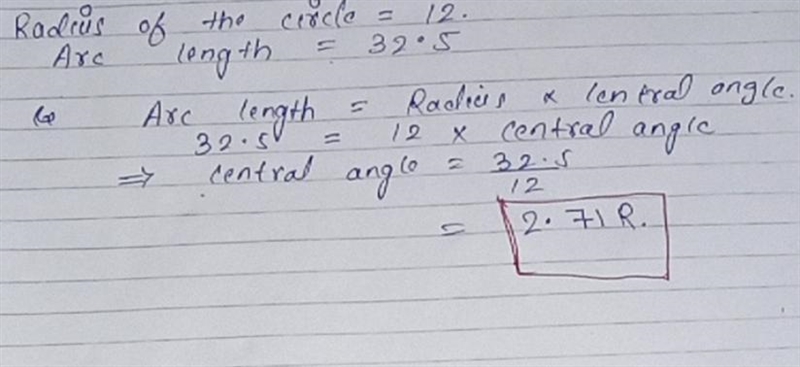 Radius of the circle = 12.
Arc length = 32.5
Arc length = Radius x Central angle.
32.5 = 12 x central angle
⇒ central angle = 32.5
12
= 2.71 R.